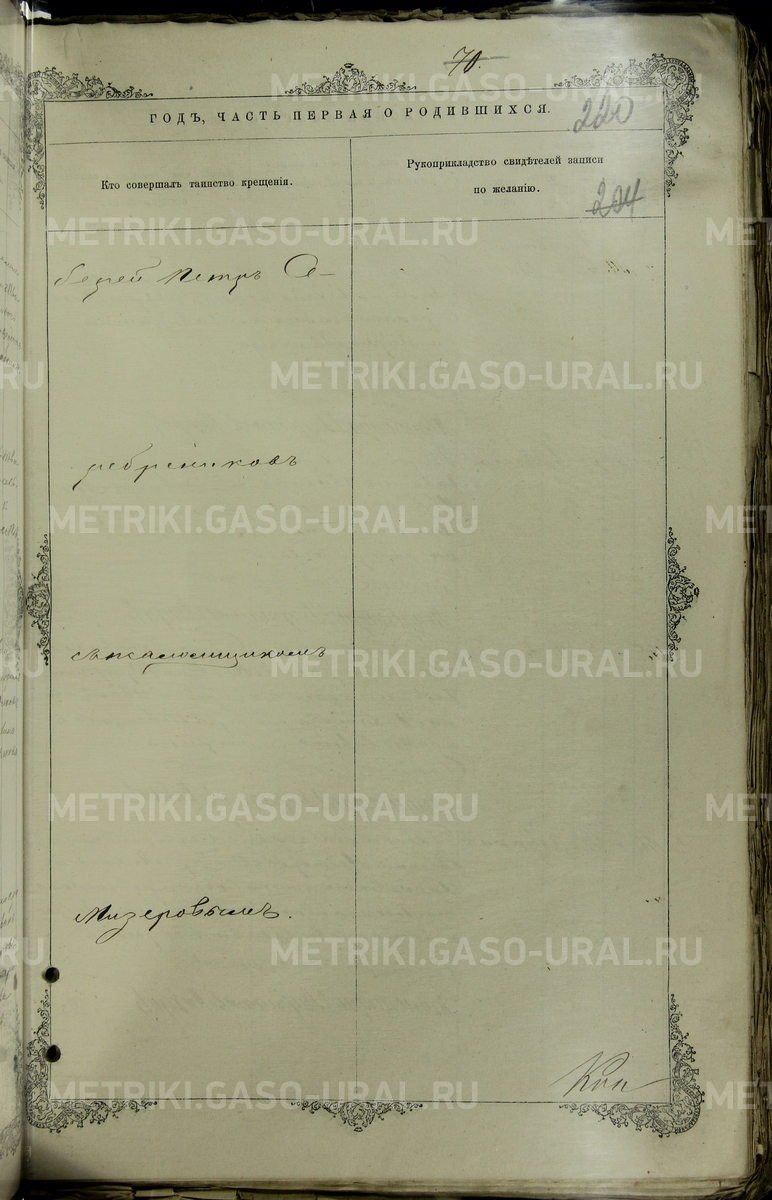 70
ГОДЪ, ЧАСТЬ ПЕРВАЯ О РОДИВШИХСЯ.
220
Кто совершалъ таинство крещенія.
Рукоприкладство свидѣтелей записи
по желанію.
204
Петръ Се-
ребрениковъ
съ псаломщикомъ
Мизеровымъ.
METRIKI.GASO-URAL.RU